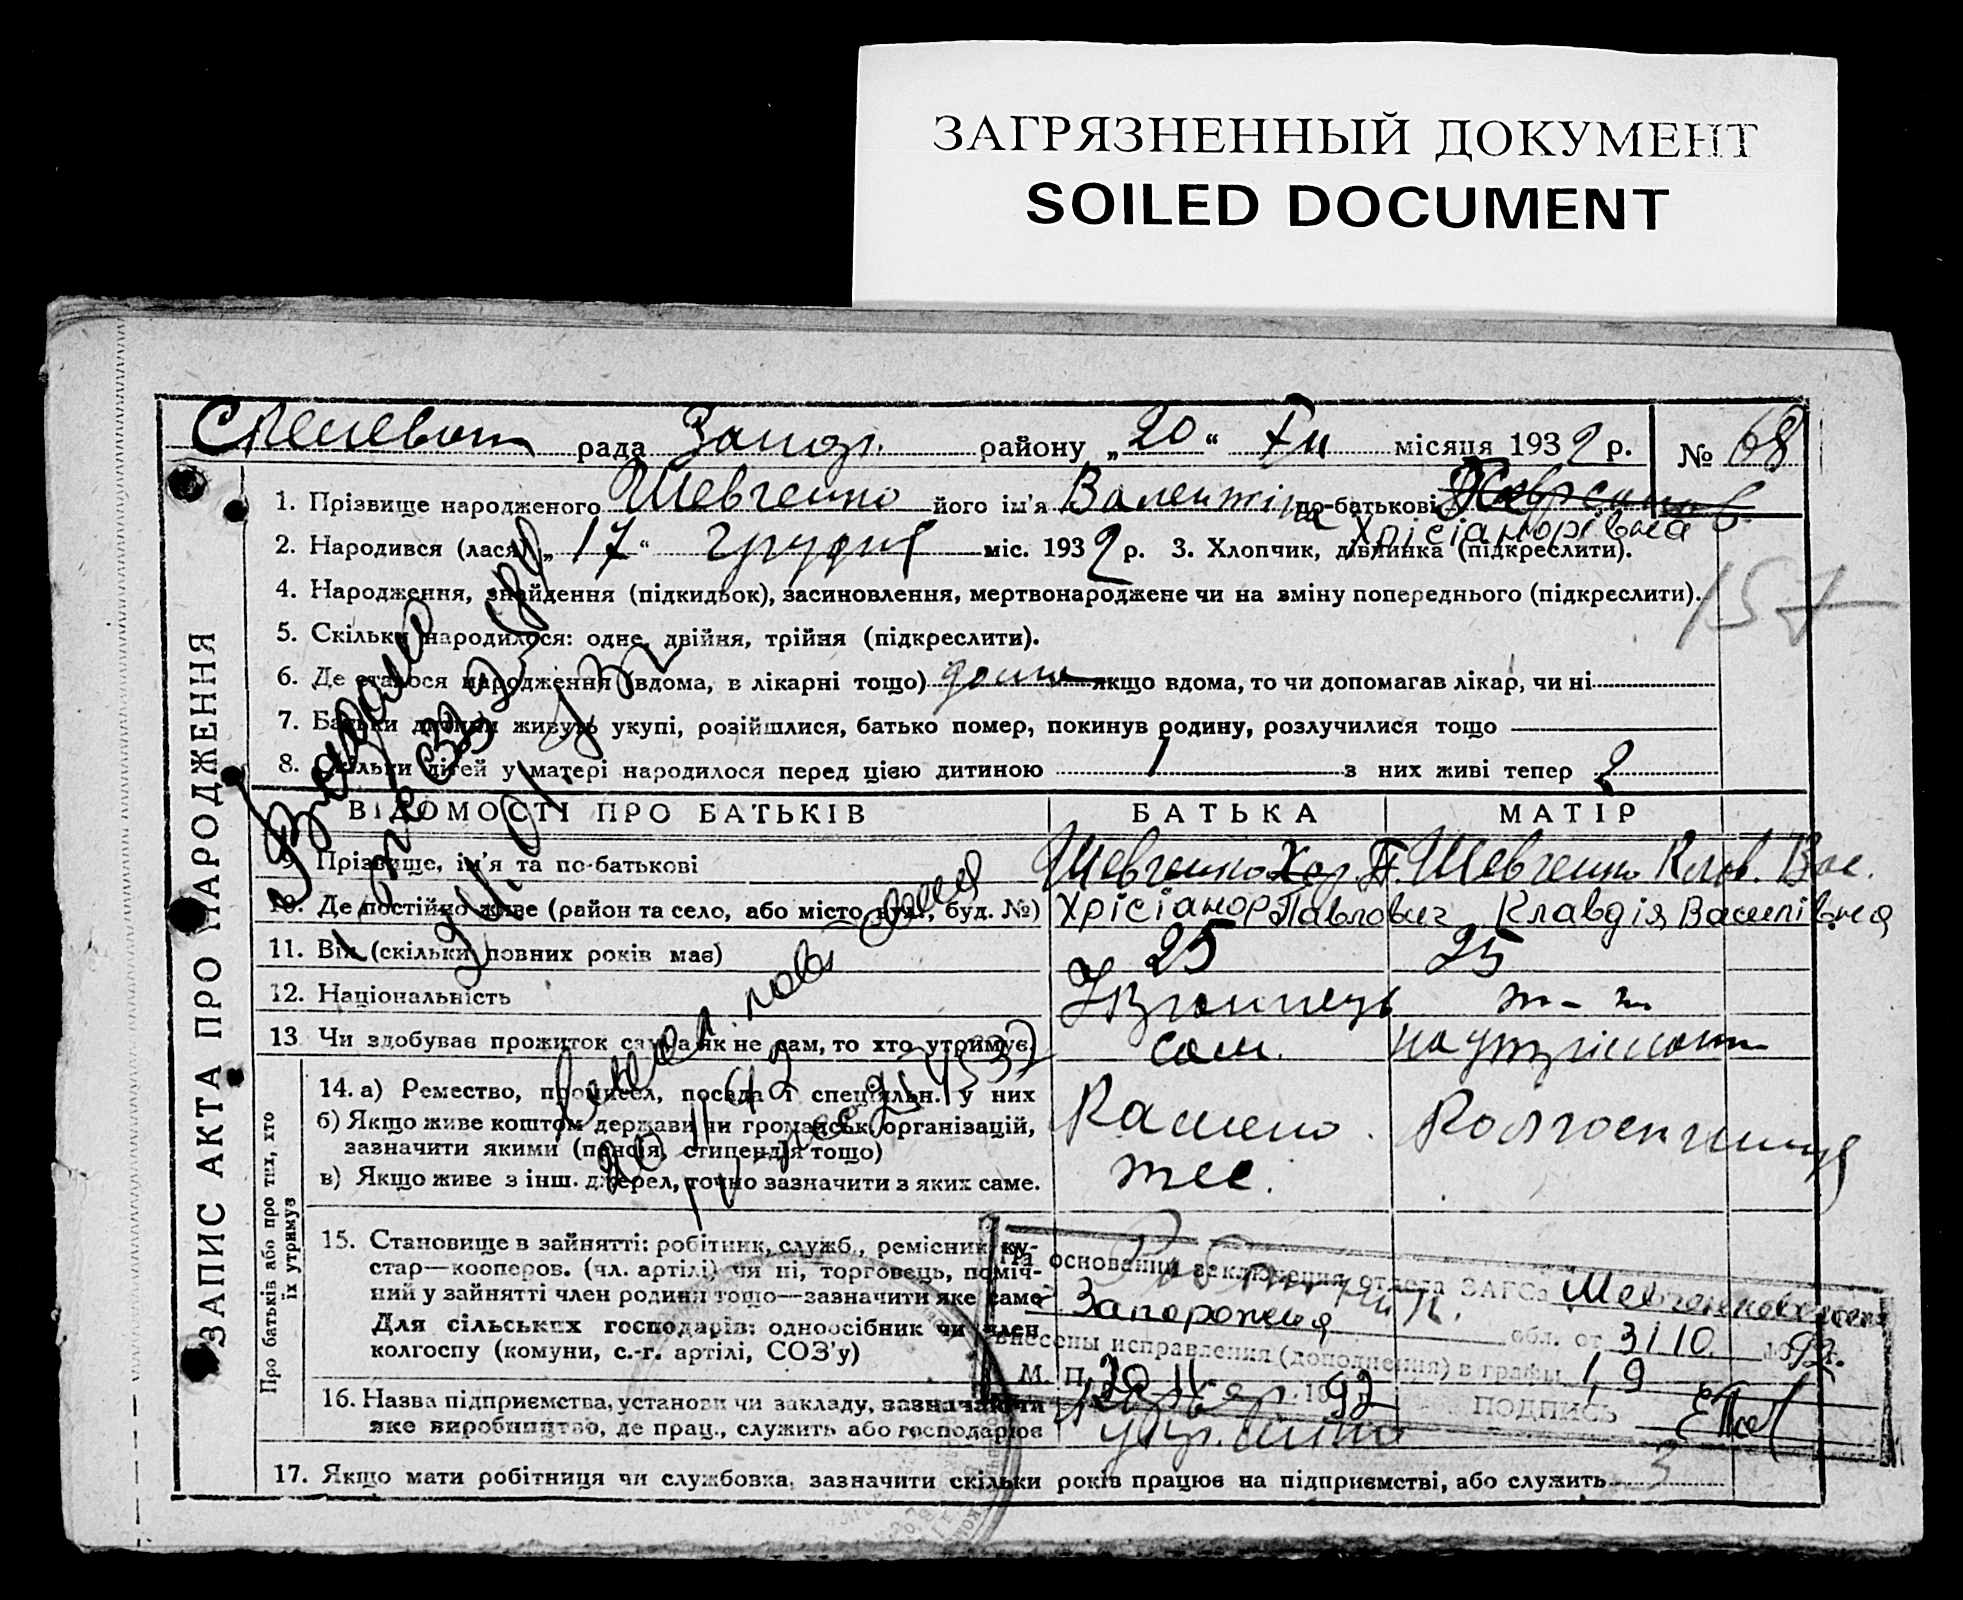 ЗАГРЯЗНЕННЫЙ ДОКУМЕНТ
SOILED DOCUMENT
рада Запор. району „20“ XII місяця 1932 р. № 68
ЗАПИС АКТА ПРО НАРОДЖЕННЯ
1. Прізвище народженого Шевченко його ім'я Валентіна по-батькові
Хрісіанорівна
2. Народився (лася) „17“ грудня міс. 1932 р. 3. Хлопчик, дівчинка (підкреслити).
4. Народження, знайдення (підкидьок), засиновлення, мертвонароджене чи на зміну попереднього (підкреслити).
157
5. Скільки народилося: одне, двійня, трійня (підкреслити).
6. Де сталося народження (вдома, в лікарні тощо) дома якщо вдома, то чи допомагав лікар, чи ні
7. Батьки дитини живуть укупі, розійшлися, батько помер, покинув родину, розлучилися тощо
8. Скільки дітей у матері народилося перед цією дитиною 1 з них живі тепер 2
ВІДОМОСТІ ПРО БАТЬКІВ БАТЬКА МАТІР
9. Прізвище, ім'я та по-батькові Шевченко Хар. П. Шевченко Клав. Вас.
10. Де постійно живе (район та село, або місто, вул., буд. №) Хрісіанор Павлович Клавдія Василівна
11. Вік (скільки повних років має) 25 25
12. Національність Українець т-т
13. Чи здобуває прожиток сам, а як не сам, то хто утримує. сам. на утриманні
Про батьків або про тих, хто їх утримує
14. а) Ремество, промисел, посада і спеціяльн. у них
б) Якщо живе коштом держави чи громадськ. організацій,
зазначити якими (пенсія, стипендія тощо)
в) Якщо живе з інш. джерел, точно зазначити з яких саме.
Камено
тес.
Колгоспниця
15. Становище в зайнятті: робітник, служб., ремісник ку-
стар—кооперов. (чл. артілі) чи ні, торговець, поміч-
ний у зайнятті член родини тощо—зазначити яке саме
Для сільських господарів: одноосібник чи член
колгоспу (комуни, с.-г. артілі, СОЗ'у)
Робітник.
На основании заключения отдела ЗАГСа Шевченковского
Запорожья обл. от 31 10. 1992г.
внесены исправления (дополнения) в графы 1, 9
М. П. 20 11 1992
ПОДПИСЬ
16. Назва підприємства, установи чи закладу, зазначаючи
яке виробництво, де прац., служить або господарює
17. Якщо мати робітниця чи службовка, зазначити скільки років працює на підприємстві, або служить 3